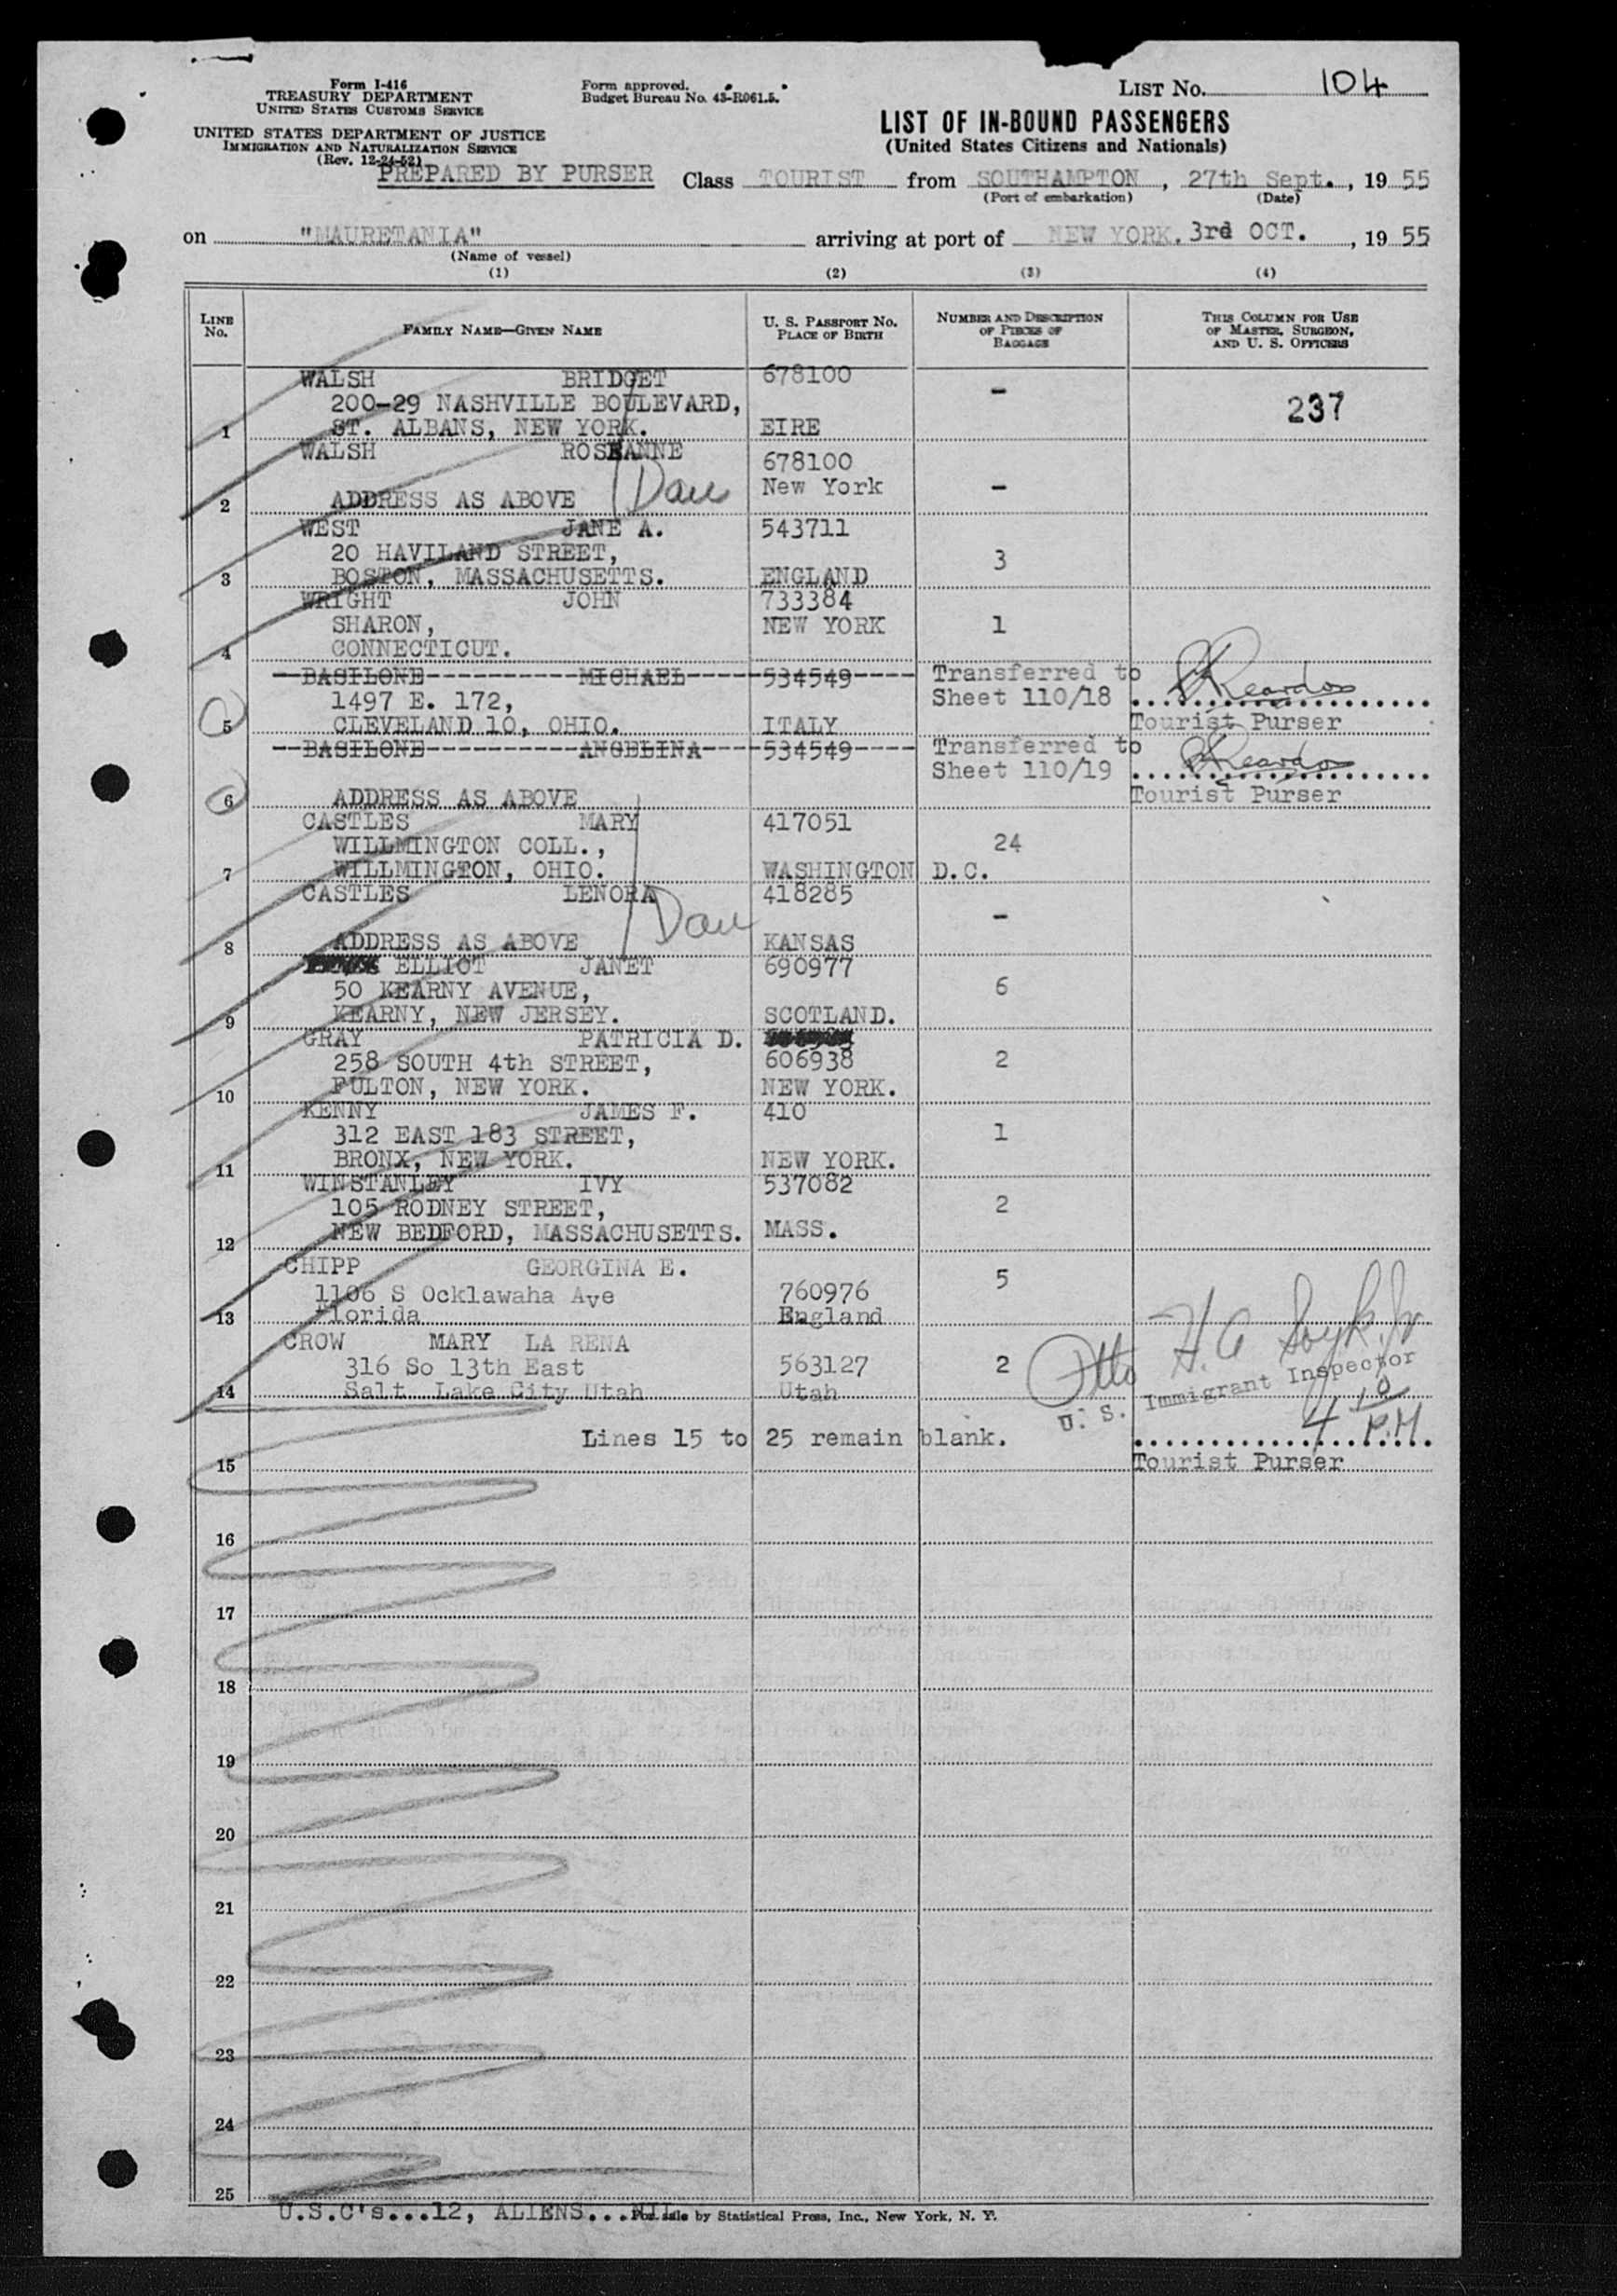 Form I-416
TREASURY DEPARTMENT
UNITED STATES CUSTOMS SERVICE
UNITED STATES DEPARTMENT OF JUSTICE
IMMIGRATION AND NATURALIZATION SERVICE
(Rev. 12-24-52)
Form approved.
Budget Bureau No. 43-R061.5.
LIST NO. 104
LIST OF IN-BOUND PASSENGERS
(United States Citizens and Nationals)
PREPARED BY PURSER Class TOURIST from SOUTHAMPTON, 27th Sept., 19 55
(Port of embarkation) (Date)
on "MAURETANIA" arriving at port of NEW YORK. 3rd OCT., 19 55
(Name of vessel)
(1) (2) (3) (4)
LINE No. FAMILY NAME—GIVEN NAME U. S. PASSPORT No. PLACE OF BIRTH NUMBER AND DESCRIPTION OF PIECES OF BAGGAGE THIS COLUMN FOR USE OF MASTER, SURGEON, AND U. S. OFFICERS
WALSH BRIDGET 678100 -
200-29 NASHVILLE BOULEVARD, 237
1 ST. ALBANS, NEW YORK. EIRE
WALSH ROSEANNE 678100
Dau New York -
2 ADDRESS AS ABOVE
WEST JANE A. 543711
20 HAVILAND STREET, 3
3 BOSTON, MASSACHUSETTS. ENGLAND
WRIGHT JOHN 733384
SHARON, NEW YORK 1
4 CONNECTICUT.
BASILONE MICHAEL 534549 Transferred to
1497 E. 172, Sheet 110/18
5 CLEVELAND 10, OHIO. ITALY Tourist Purser
BASILONE ANGELINA 534549 Transferred to
Sheet 110/19
6 ADDRESS AS ABOVE Tourist Purser
CASTLES MARY 417051
WILLMINGTON COLL., 24
7 WILLMINGTON, OHIO. WASHINGTON D.C.
CASTLES LENORA 418285
Dau -
8 ADDRESS AS ABOVE KANSAS
ELLIOT JANET 690977
50 KEARNY AVENUE, 6
9 KEARNY, NEW JERSEY. SCOTLAND.
GRAY PATRICIA D.
258 SOUTH 4th STREET, 606938 2
10 FULTON, NEW YORK. NEW YORK.
KENNY JAMES F. 410
312 EAST 183 STREET, 1
11 BRONX, NEW YORK. NEW YORK.
WINSTANLEY IVY 537082
105 RODNEY STREET, 2
12 NEW BEDFORD, MASSACHUSETTS. MASS.
CHIPP GEORGINA E. 5
1106 S Ocklawaha Ave 760976
13 Florida England
CROW MARY LA RENA
316 So 13th East 563127 2
14 Salt Lake City Utah Utah
U. S. Immigrant Inspector
4 10 P.M.
Lines 15 to 25 remain blank.
15 Tourist Purser
16
17
18
19
20
21
22
23
24
25
U.S.C's...12, ALIENS...NIL
For sale by Statistical Press, Inc., New York, N. Y.